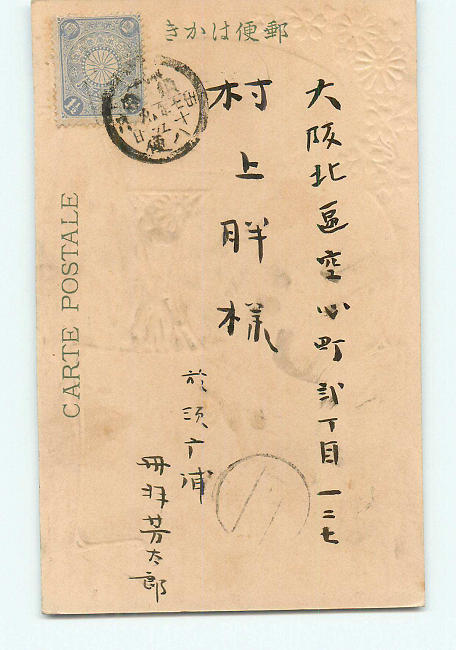 郵便はかき
大阪北區空心町貳丁目一二七
村上胖様
於須广浦
丹羽芳太郎
CARTE POSTALE
1½